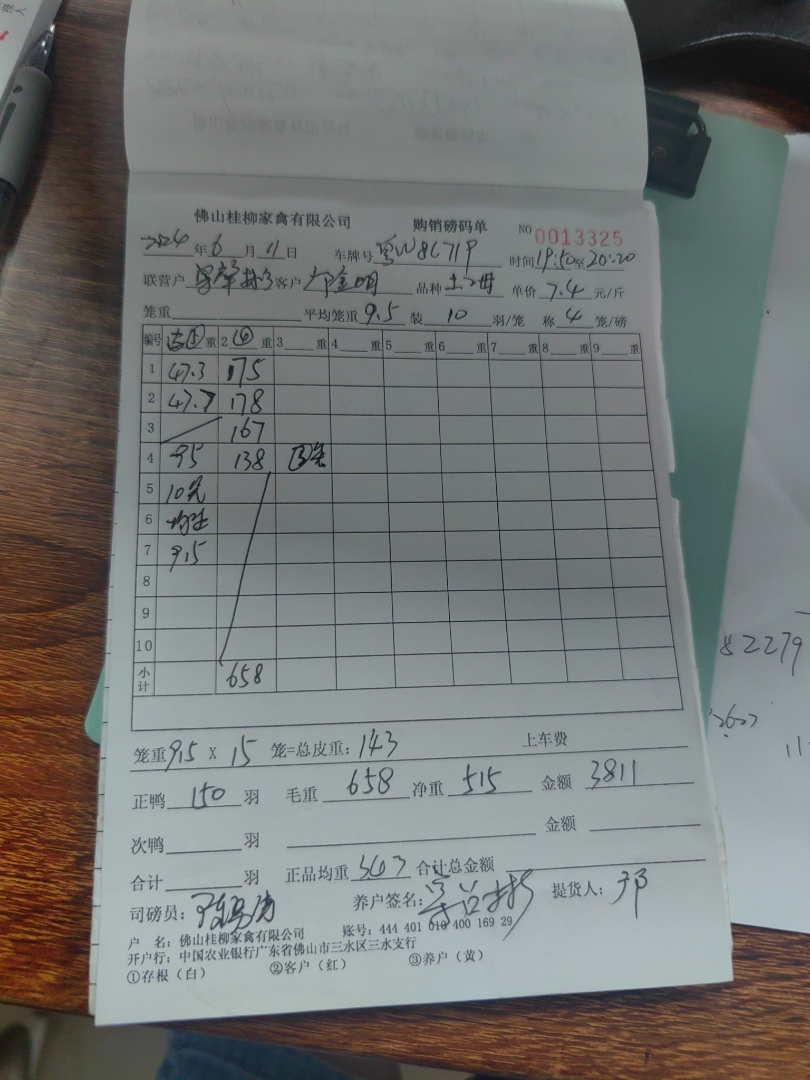 佛山桂柳家禽有限公司 购销磅码单 NO 0013325
2024年6月11日 车牌号 粤W8C719 时间19:50至20:20
联营户 客户 品种 土2母 单价 7.4 元/斤
笼重 平均笼重 9.5 装 10 羽/笼 称 4 笼/磅
编号 重 2 ④ 重 3 重 4 重 5 重 6 重 7 重 8 重 9 重
1 47.3 175
2 47.7 178
3 167
4 95 138 ③笼
5 10笼
6 均重
7 9.5
8
9
10
小计 658
笼重 9.5 X 15 笼=总皮重: 143 上车费
正鸭 150 羽 毛重 658 净重 515 金额 3811
次鸭 羽 金额
合计 羽 正品均重 3.43 合计总金额
司磅员: 养户签名: 提货人: 邝
户 名: 佛山桂柳家禽有限公司 账号: 444 401 010 400 169 29
开户行: 中国农业银行广东省佛山市三水区三水支行
①存根(白) ②客户(红) ③养户(黄)
82279